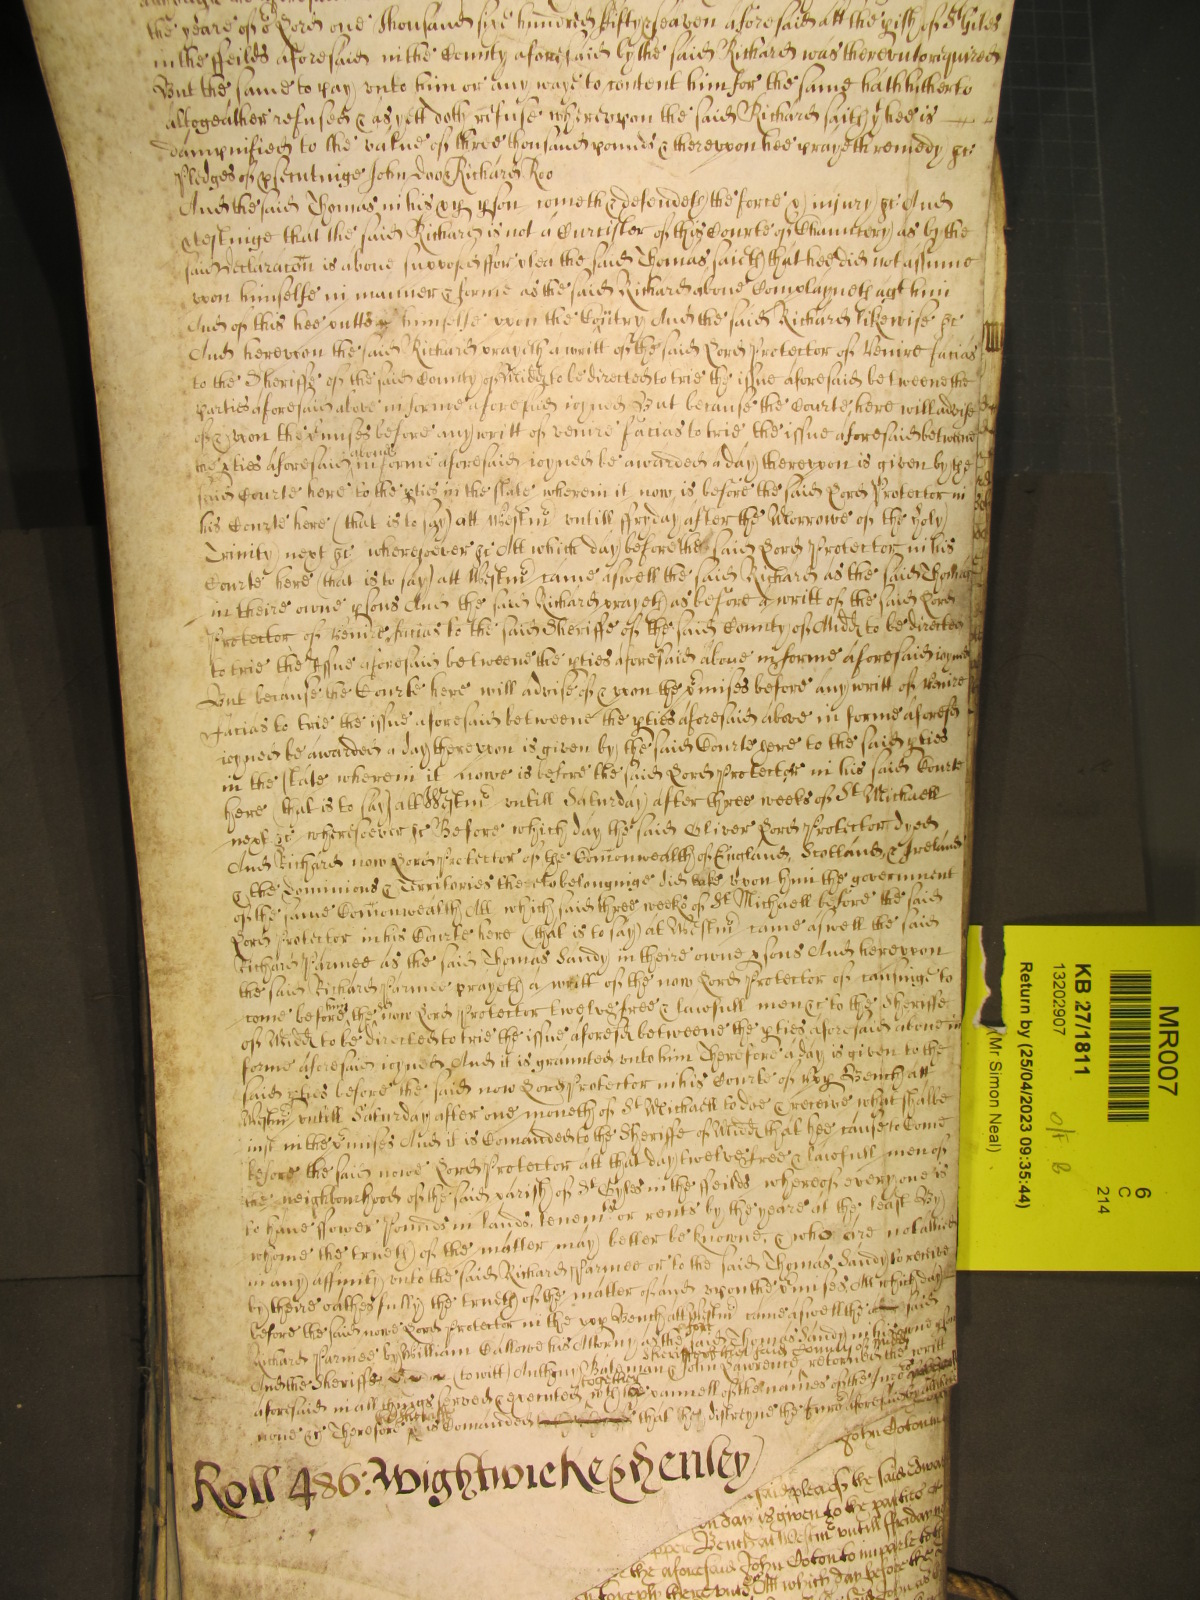 the yeare of or Lord one Thousand six hundred fifty seaven aforesaid att the pish of St Giles
in the ffeilds aforesaid in the County aforesaid by the said Richard was therevnto required
But the same to pay vnto him or any waye to content him for the same hath hitherto
altogeather refused & as yett doth refuse wherevpon the said Richard saith yt hee is
dampnified to the value of three thousand pounds & therevpon hee prayeth remedy &c
Pledges of psecutinge John Doo & Richard Roo
And the said Thomas in his pp pson cometh & defendeth the force & injury &c And
testinge that the said Richard is not a Cursister of this Courte of Chauncery as by the
said declaracon is above supposed ffor plea the said Thomas saieth that hee did not assume
vpon himselfe in manner & forme as the said Richard above Complayneth agt him
And of this hee putts himselfe vpon the Cuntry And the said Richard likewise &c
And herevpon the said Richard prayeth a writt of the said Lord Protector of Venire facias
to the Sheriffe of the said County of Midd to be directed to trie the issue aforesaid betweene the
parties aforesaid above in forme aforesaid ioyned But because the Courte here will advise
of & vpon the pmises before any writt of venire facias to trie the issue aforesaid betweene
the pties aforesaid above in forme aforesaid ioyned be awarded a day therevpon is given by the
said Courte here to the pties in the state wherein it now is before the said Lord Protector in
his Courte here (that is to say) att Westmr vntill ffryday after the Morrowe of the Holy
Trinity next &c wheresoever &c Att which day before the said Lord Protector in his
Courte here (that is to say) att Westmr came aswell the said Richard as the said Thomas
in theire owne psons And the said Richard prayeth as before a writt of the said Lord
Protector of Venire facias to the said Sheriffe of the said County of Midd to be directed
to trie the Issue aforesaid betweene the pties aforesaid above in forme aforesaid ioyned
But because the Courte here will advise of & vpon the pmises before any writt of Venire
facias to trie the issue aforesaid betweene the pties aforesaid above in forme aforesd
ioyned be awarded a day therevpon is given by the said Courte here to the said pties
in the state wherein it nowe is before the said Lord Protector in his said Courte
here (that is to say) att Westmr vntill Saturday after three weeks of St Michaell
next &c wheresoever &c Before which day the said Oliver Lord Protector dyed
And Richard now Lord Protector of the Comonwealth of England, Scotland, & Ireland
& the Dominions & Territories thereto belonginge did take vpon him the government
of the same Comonwealth Att which said three weeks of St Michaell before the said
Lord Protector in his Courte here (that is to say) at Westmr came aswell the said
Richard Parmee as the said Thomas Dandy in theire owne psons And herevpon
the said Richard Parmee prayeth a writt of the now Lord Protector of causinge to
come before the now Lord Protector twelve free & lawfull men &c to the Sheriffe
of Midd to be directed to trie the issue aforesd betweene the pties aforesaid above in
forme aforesaid ioyned And it is graunted vnto him Therefore a day is given to the
said pties before the said now Lord Protector in his Courte of vpp Bench att
Westmr vntill Saturday after one moneth of St Michaell to doe & receive what shalbe
iust in the pmises And it is Comanded to the Sheriffe of Midd that hee cause to Come
before the said nowe Lord Protector att that day twelve free & lawfull men of
the neighbourhood of the said parish of St Gyles in the ffeilds whereof every one is
to have ffower Pounds in lands, tenemts or rents by the yeare at the least By
whome the trueth of the matter may better be knowne, & who are not allied
in any affinity vnto the said Richard Parmee or to the said Thomas Dandy to retrive
by theire oathes fully the trueth of the matter of and vpon the pmises Att which day
before the said nowe Lord Protector in the vpp Bench att Westmr came aswell the said
Richard Parmee by William Callowe his Attorny as the said Thomas Dandy in his pson
And the Sheriffe (to witt) Anthony Bateman & John Lawrence Sheriffe of the said County of Midd retorned the writt
aforesaid in all things served & executed together wth a pannell of the names of the Iuro
none &c Therefore it is Comanded that hee distreyne the Iuro aforesaid by all
Roll 486: Wightwicke & Henley
John Ooton
said pleads the said Edwar
on day is given to the parties
pper Bench at Westmr vntill ffriday
the aforesaid John Ooton to imparle to
Att which day before the
MR007
6
C
214
KB 27/1811
13202907
Return by (25/04/2023 09:35:44)
(Mr Simon Neal)